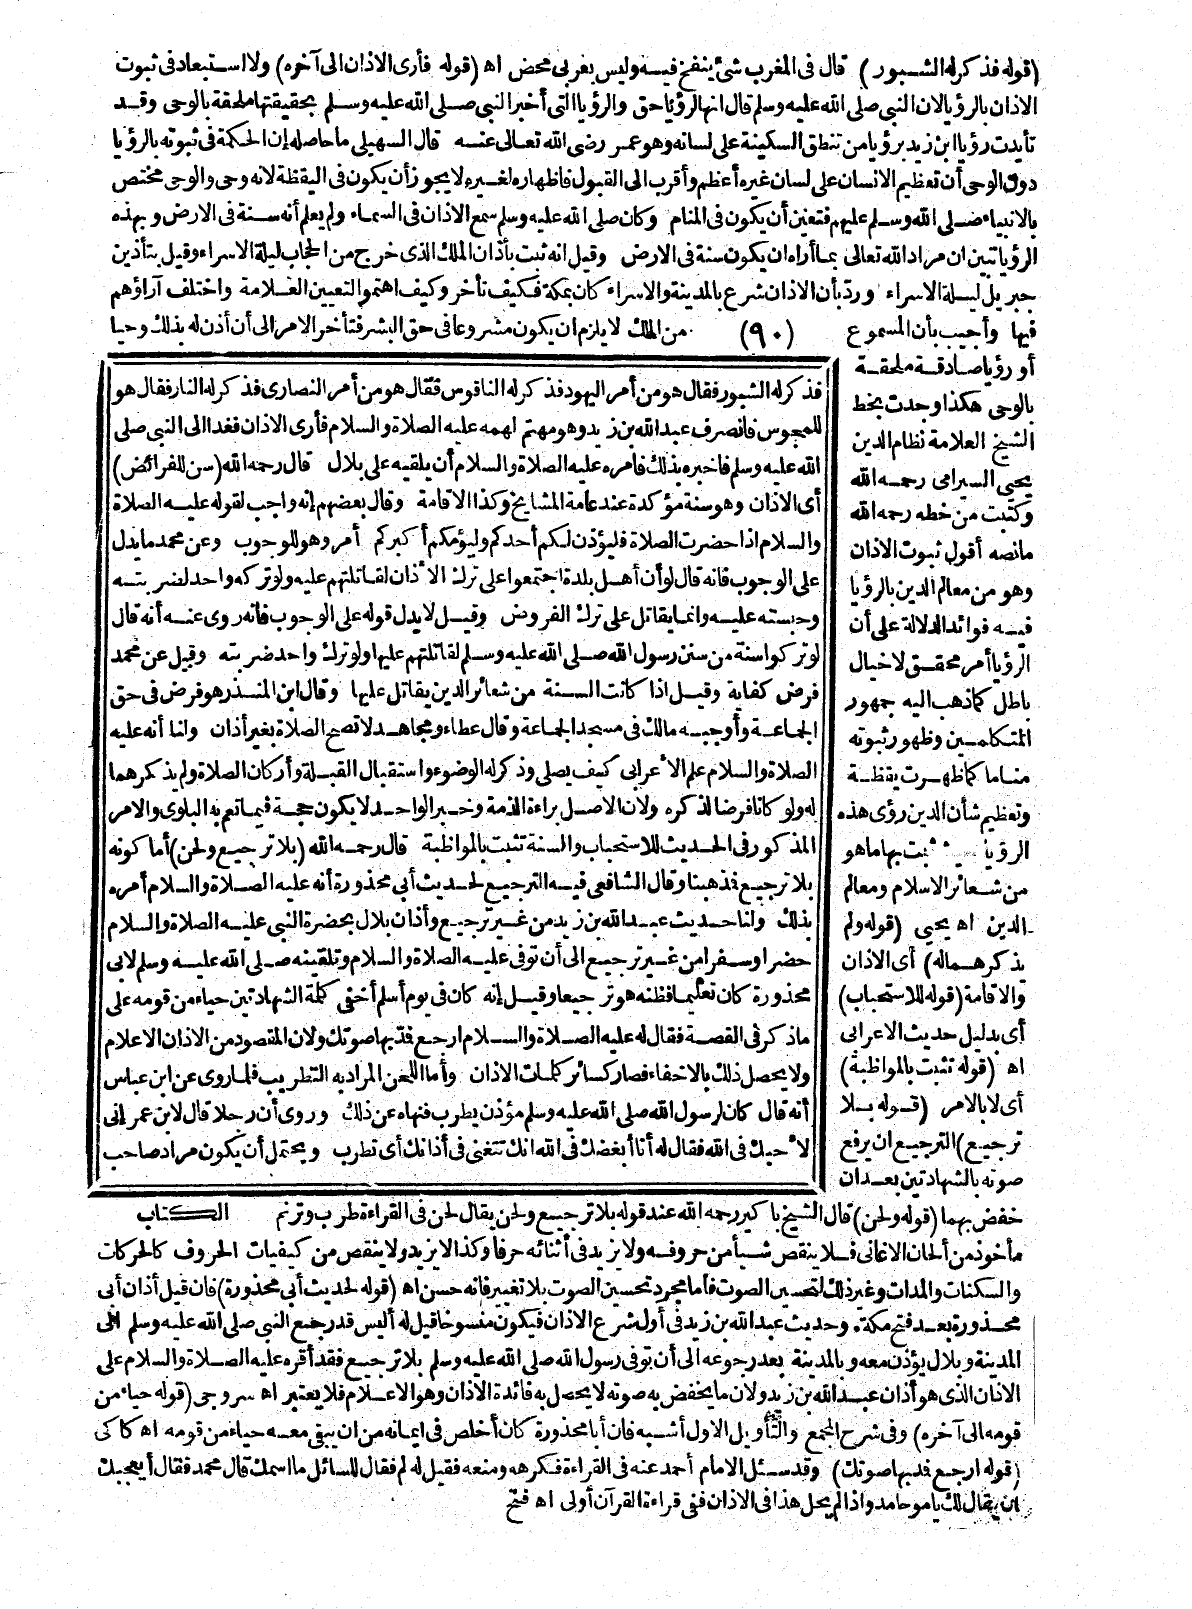 (قوله فذكر له الشبور) قال في المغرب شئ ينفخ فيه وليس بعربى محض اه (قوله فأرى الاذان الى آخره) ولا استبعاد فى ثبوت
الاذان بالرؤيا لان النبي صلى الله عليه وسلم قال انها لرؤيا حق والرؤيا التى أخبر النبي صلى الله عليه وسلم بحقيقتها ملحقة بالوحى وقد
تأيدت رؤيا ابن زيد برؤيا من تنطق السكينة على لسانه وهو عمر رضى الله تعالى عنه قال السهيلى ما حاصله إن الحكمة فى ثبوته بالرؤيا
دون الوحى أن تعظيم الانسان على لسان غيره أعظم وأقرب الى القبول فاظهاره لغيره لا يجوز أن يكون فى اليقظة لانه وحى والوحى مختص
بالانبياء صلى الله وسلم عليهم فتعين أن يكون فى المنام وكان صلى الله عليه وسلم سمع الاذان فى السماء ولم يعلم أنه سنة فى الارض وبهذه
الرؤيا تبين ان مراد الله تعالى بما أراه ان يكون سنة فى الارض وقيل انه ثبت بأذان الملك الذى خرج من الحجاب ليلة الاسراء وقيل بتأذين
جبريل ليلة الاسراء وردّ بأن الاذان شرع بالمدينة والاسراء كان بمكة فكيف تأخر وكيف اهتموا لتعيين العلامة واختلف آراؤهم
فيها وأجيب بأن المسموع (٩٠) من الملك لا يلزم ان يكون مشروعا فى حق البشر فتأخر الامر الى أن أذن له بذلك وحيا
أو رؤيا صادقة ملحقة
بالوحى هكذا وجدت بخط
الشيخ العلامة نظام الدين
يحيى السيرامى رحمه الله
وكتبت من خطه رحمه الله
مانصه أقول ثبوت الاذان
وهو من معالم الدين بالرؤيا
فيه فوائد الدلالة على أن
الرؤيا أمر محقق لا خيال
باطل كما ذهب اليه جمهور
المتكلمين وظهور ثبوته
مناما كما ظهرت يقظة
وتعظيم شأن الدين رؤى هذه
الرؤيا بها ما هو
من شعائر الاسلام ومعالم
الدين اه يحيى (قوله ولم
يذكرهما له) أى الاذان
والاقامة (قوله للاستحباب)
أى بدليل حديث الاعرابى
اه (قوله تثبت بالمواظبة)
أى لا بالامر (قوله بلا
ترجيع) الترجيع ان يرفع
صوته بالشهادتين بعد ان
فذكر له الشبور فقال هو من أمر اليهود فذكر له الناقوس فقال هو من أمر النصارى فذكر له النار فقال هو
للمجوس فانصرف عبد الله بن زيد وهو مهتم لهمه عليه الصلاة والسلام فأرى الاذان فغدا الى النبي صلى
الله عليه وسلم فاخبره بذلك فامره عليه الصلاة والسلام أن يلقيه على بلال قال رحمه الله (سن للفرائض)
أى الاذان وهو سنة مؤكدة عند عامة المشايخ وكذا الاقامة وقال بعضهم إنه واجب لقوله عليه الصلاة
والسلام اذا حضرت الصلاة فليؤذن لكم أحدكم وليؤمكم أكبركم أمر وهو للوجوب وعن محمد ما يدل
على الوجوب فانه قال لو أن أهل بلدة اجتمعوا على ترك الأذان لقاتلتهم عليه ولو تركه واحد لضربته
وحبسته عليه وانما يقاتل على ترك الفروض وقيل لا يدل قوله على الوجوب فانه روى عنه أنه قال
لو تركوا سنة من سنن رسول الله صلى الله عليه وسلم لقاتلتهم عليها ولو ترك واحد ضربته وقيل عن محمد
فرض كفاية وقيل اذا كانت السنة من شعائر الدين يقاتل عليها وقال ابن المنذر هو فرض فى حق
الجماعة وأوجبه مالك فى مسجد الجماعة وقال عطاء ومجاهد لا تصح الصلاة بغير أذان ولنا أنه عليه
الصلاة والسلام علم الأعرابى كيف يصلى وذكر له الوضوء واستقبال القبلة وأركان الصلاة ولم يذكرهما
له ولو كانا فرضا لذكره ولان الاصل براءة الذمة وخبر الواحد لا يكون حجة فيما تعم به البلوى والامر
المذكور فى الحديث للاستحباب والسنة تثبت بالمواظبة قال رحمه الله (بلا ترجيع ولحن) أما كونه
بلا ترجيع فذهبنا وقال الشافعى فيه الترجيع لحديث أبى محذورة أنه عليه الصلاة والسلام أمره
بذلك ولنا حديث عبد الله بن زيد من غير ترجيع وأذان بلال بحضرة النبي عليه الصلاة والسلام
حضرا وسفرا من غير ترجيع الى أن توفى عليه الصلاة والسلام وتلقينه صلى الله عليه وسلم لابى
محذورة كان تعليما فظنه هو ترجيعا وقيل إنه كان فى يوم أسلم أخفى كلمة الشهادتين حياء من قومه على
ما ذكر فى القصة فقال له عليه الصلاة والسلام ارجع فمدّ بها صوتك ولان المقصود من الاذان الاعلام
ولا يحصل ذلك بالاخفاء فصار كسائر كلمات الاذان وأما اللحن المراد به التطريب فلما روى عن ابن عباس
أنه قال كان لرسول الله صلى الله عليه وسلم مؤذن يطرب فنهاه عن ذلك وروى أن رجلا قال لابن عمر إنى
لأحبك فى الله فقال له أنا أبغضك فى الله انك تتغنى فى أذانك أى تطرب ويحتمل أن يكون مراد صاحب
الكتاب
خفض بهما (قوله ولحن) قال الشيخ باكير رحمه الله عند قوله بلا ترجيع ولحن يقال لحن فى القراءة طرب وترنم
مأخوذ من ألحان الاغانى فلا ينقص شيأ من حروفه ولا يزيد فى أثنائه حرفا وكذا لا يزيد ولا ينقص من كيفيات الحروف كالحركات
والسكنات والمدات وغير ذلك لتحسين الصوت فأما مجرد تحسين الصوت بلا تغيير فانه حسن اه (قوله لحديث أبى محذورة) فان قيل أذان أبى
محذورة بعد فتح مكة وحديث عبد الله بن زيد فى أول شرع الاذان فيكون منسوخا قيل له أليس قد رجع النبي صلى الله عليه وسلم الى
المدينة وبلال يؤذن معه وبالمدينة بعد رجوعه الى أن توفى رسول الله صلى الله عليه وسلم بلا ترجيع فقد أقره عليه الصلاة والسلام على
الاذان الذى هو أذان عبد الله بن زيد ولان ما يخفض به صوته لا يحصل به فائدة الاذان وهو الاعلام فلا يعتبر اه سروجى (قوله حياء من
قومه الى آخره) وفى شرح المجمع والتأويل الاول أشبه فان أبا محذورة كان أخلص فى ايمانه من ان يبقى معه حياء من قومه اه كاكى
(قوله ارجع فمد بها صوتك) وقد سئل الامام أحمد عنه فى القراءة فكرهه ومنعه فقيل له لم فقال للسائل ما اسمك قال محمد فقال أيعجبك
ان يقال لك يا موحامد واذا لم يحل هذا فى الاذان ففى قراءة القرآن أولى اه فتح